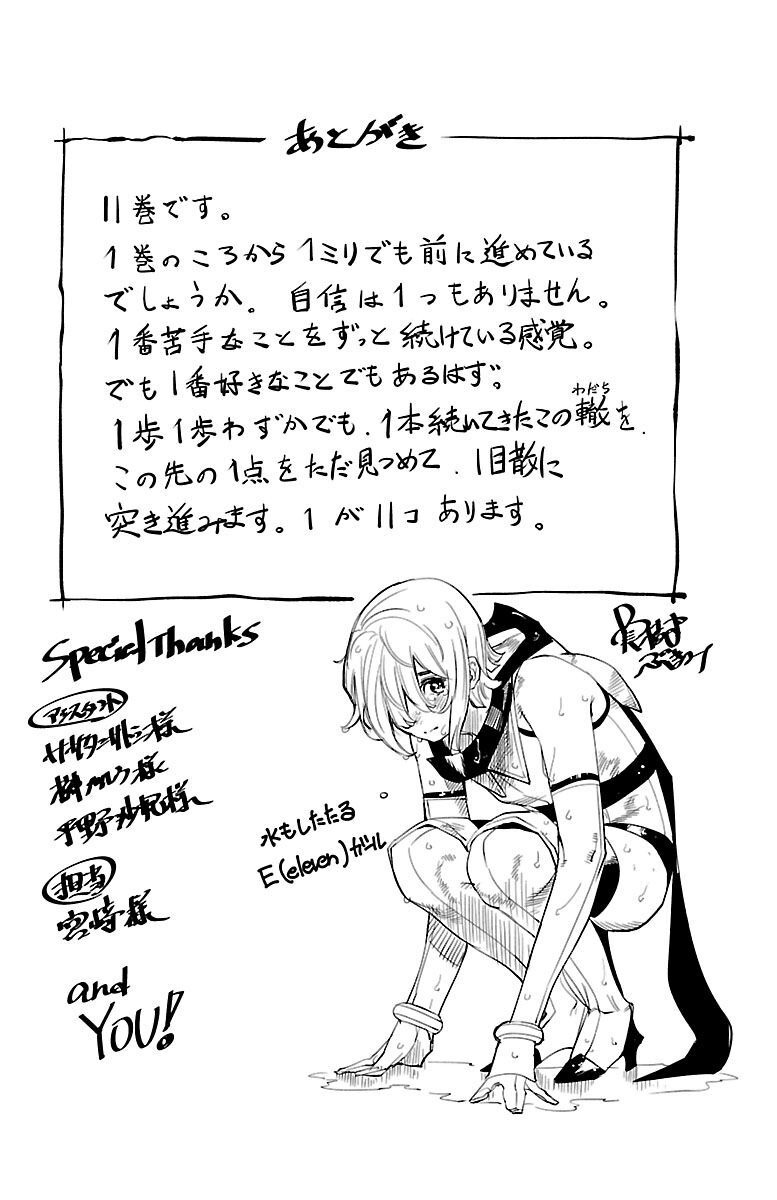 あとがき
11巻です。
1巻のころから1ミリでも前に進めている
でしょうか。 自信は1つもありません。
1番苦手なことをずっと続けている感覚。
でも1番好きなことでもあるはず。
わだち
1歩1歩わずかでも、1本続いてきたこの轍を、
この先の1点をただ見つめて、1目散に
突き進みます。1が11コあります。
Special Thanks
アシスタント
様
様
平野沙 様
担当
宮崎様
and
YOU!
水もしたたる
E(eleven)ガール